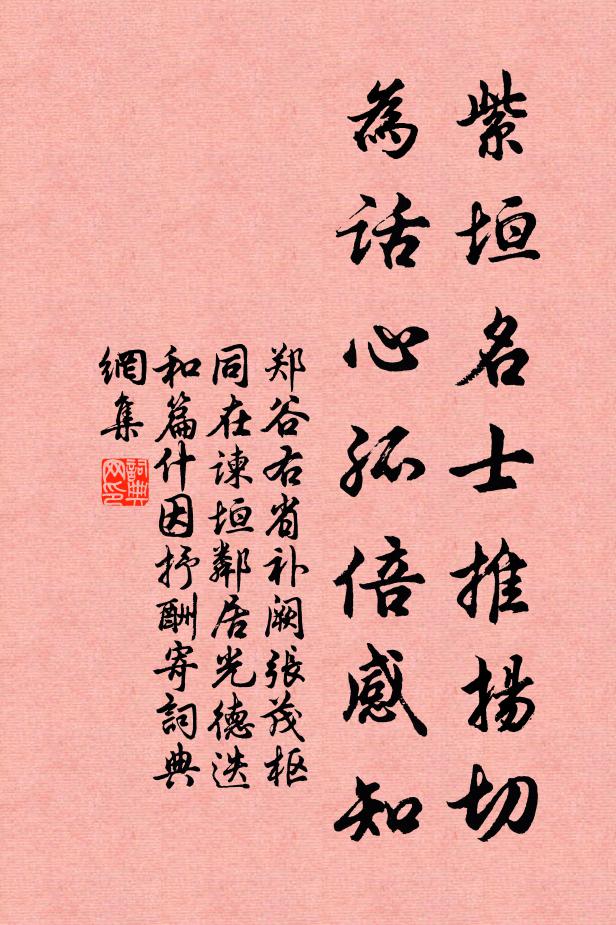 紫垣名士推揚切
為話心孤倍感知
郑谷右省补阙張茂枢
同在諫垣鄰居光德迭
和篇什因抒酬寄詞典
網集
詞典网印